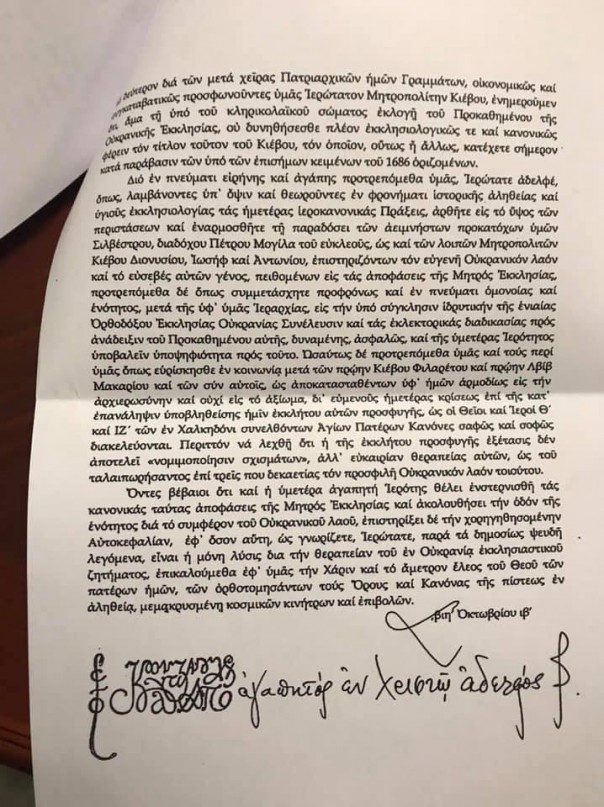 δεύτερον διά τῶν μετά χεῖρας Πατριαρχικῶν ἡμῶν Γραμμάτων, οἰκονομικῶς καί
συγκαταβατικῶς προσφωνοῦντες ὑμᾶς Ἱερώτατον Μητροπολίτην Κιέβου, ἐνημεροῦμεν
ὅτι ἅμα τῇ ὑπό τοῦ κληρικολαϊκοῦ σώματος ἐκλογῇ τοῦ Προκαθημένου τῆς
Οὐκρανικῆς Ἐκκλησίας, οὐ δυνηθήσεσθε πλέον ἐκκλησιολογικῶς τε καί κανονικῶς
φέρειν τόν τίτλον τοῦτον τοῦ Κιέβου, τόν ὁποῖον, οὕτως ἤ ἄλλως, κατέχετε σήμερον
κατά παράβασιν τῶν ὑπό τῶν ἐπισήμων κειμένων τοῦ 1686 ὁριζομένων.
Διό ἐν πνεύματι εἰρήνης καί ἀγάπης προτρεπόμεθα ὑμᾶς, Ἱερώτατε ἀδελφέ,
ὅπως, λαμβάνοντες ὑπ᾽ ὄψιν καί θεωροῦντες ἐν φρονήματι ἱστορικῆς ἀληθείας καί
ὑγιοῦς ἐκκλησιολογίας τάς ἡμετέρας ἱεροκανονικάς Πράξεις, ἀρθῆτε εἰς τό ὕψος τῶν
περιστάσεων καί ἐναρμοσθῆτε τῇ παραδόσει τῶν ἀειμνήστων προκατόχων ὑμῶν
Σιλβέστρου, διαδόχου Πέτρου Μογίλα τοῦ εὐκλεοῦς, ὡς καί τῶν λοιπῶν Μητροπολιτῶν
Κιέβου Διονυσίου, Ἰωσήφ καί Ἀντωνίου, ἐπιστηριζόντων τόν εὐγενῆ Οὐκρανικόν λαόν
καί τό εὐσεβές αὐτῶν γένος, πειθομένων εἰς τάς ἀποφάσεις τῆς Μητρός Ἐκκλησίας,
προτρεπόμεθα δέ ὅπως συμμετάσχητε προφρόνως καί ἐν πνεύματι ὁμονοίας καί
ἑνότητος, μετά τῆς ὑφ᾽ ὑμᾶς Ἱεραρχίας, εἰς τήν ὑπό σύγκλησιν ἱδρυτικήν τῆς ἑνιαίας
Ὀρθοδόξου Ἐκκλησίας Οὐκρανίας Συνέλευσιν καί τάς ἐκλεκτορικάς διαδικασίας πρός
ἀνάδειξιν τοῦ Προκαθημένου αὐτῆς, δυναμένης, ἀσφαλῶς, καί τῆς ὑμετέρας Ἱερότητος
ὑποβαλεῖν ὑποψηφιότητα πρός τοῦτο. Ὡσαύτως δέ προτρεπόμεθα ὑμᾶς καί τούς περί
ὑμᾶς ὅπως εὑρίσκησθε ἐν κοινωνίᾳ μετά τῶν πρῴην Κιέβου Φιλαρέτου καί πρῴην Λβίβ
Μακαρίου καί τῶν σύν αὐτοῖς, ὡς ἀποκατασταθέντων ὑφ᾽ ἡμῶν ἁρμοδίως εἰς τήν
ἀρχιερωσύνην καί οὐχί εἰς τό ἀξίωμα, δι᾽ εὐμενοῦς ἡμετέρας κρίσεως ἐπί τῆς κατ᾽
ἐπανάληψιν ὑποβληθείσης ἡμῖν ἐκκλήτου αὐτῶν προσφυγῆς, ὡς οἱ Θεῖοι καί Ἱεροί Θ´
καί ΙΖ´ τῶν ἐν Χαλκηδόνι συνελθόντων Ἁγίων Πατέρων Κανόνες σαφῶς καί σοφῶς
διακελεύονται. Περιττόν νά λεχθῇ ὅτι ἡ τῆς ἐκκλήτου προσφυγῆς ἐξέτασις δέν
ἀποτελεῖ «νομιμοποίησιν σχισμάτων», ἀλλ᾽ εὐκαιρίαν θεραπείας αὐτῶν, ὡς τοῦ
ταλαιπωρήσαντος ἐπί τρεῖς που δεκαετίας τόν προσφιλῆ Οὐκρανικόν λαόν τοιούτου.
Ὄντες βέβαιοι ὅτι καί ἡ ὑμετέρα ἀγαπητή Ἱερότης θέλει ἐνστερνισθῆ τάς
κανονικάς ταύτας ἀποφάσεις τῆς Μητρός Ἐκκλησίας καί ἀκολουθήσει τήν ὁδόν τῆς
ἑνότητος διά τό συμφέρον τοῦ Οὐκρανικοῦ λαοῦ, ἐπιστηρίξει δέ τήν χορηγηθησομένην
Αὐτοκεφαλίαν, ἐφ᾽ ὅσον αὕτη, ὡς γνωρίζετε, Ἱερώτατε, παρά τά δημοσίως ψευδῆ
λεγόμενα, εἶναι ἡ μόνη λύσις δια τήν θεραπείαν τοῦ ἐν Οὐκρανίᾳ ἐκκλησιαστικοῦ
ζητήματος, ἐπικαλούμεθα ἐφ᾽ ὑμᾶς τήν Χάριν καί τό ἄμετρον ἔλεος τοῦ Θεοῦ τῶν
πατέρων ἡμῶν, τῶν ὀρθοτομησάντων τούς Ὅρους καί Κανόνας τῆς πίστεως ἐν
ἀληθείᾳ, μεμακρυσμένῃ κοσμικῶν κινήτρων καί ἐπιβολῶν.
͵βιη´ Ὀκτωβρίου ιβ´
ἀγαπητός ἐν Χριστῷ ἀδελφός